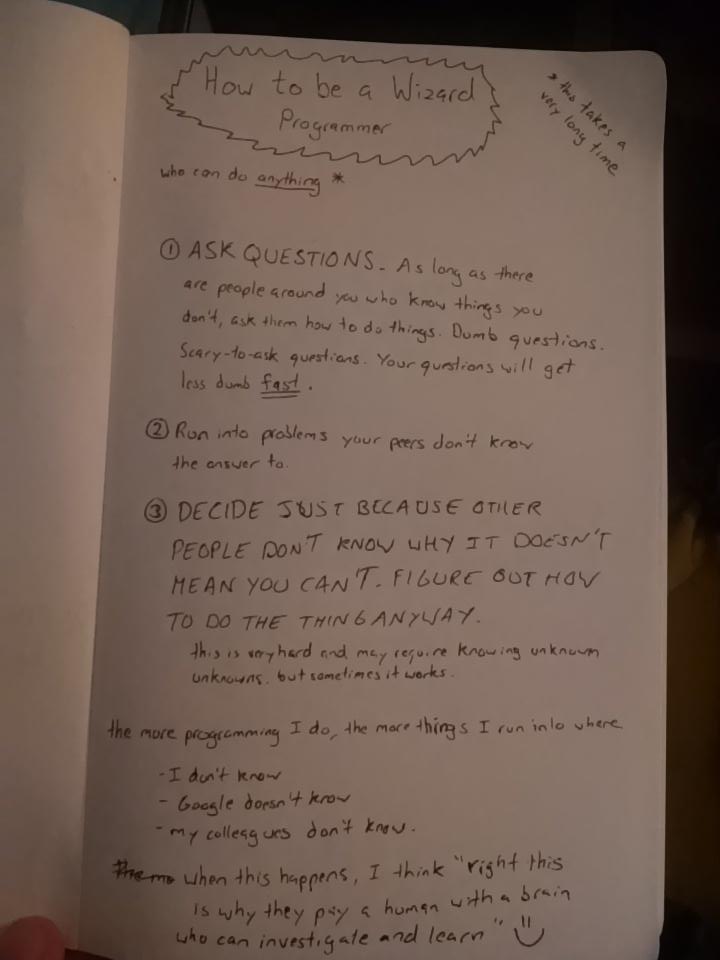 How to be a Wizard
Programmer
* this takes a
very long time
who can do anything *
① ASK QUESTIONS. As long as there
are people around you who know things you
don't, ask them how to do things. Dumb questions.
Scary-to-ask questions. Your questions will get
less dumb fast.
② Run into problems your peers don't know
the answer to.
③ DECIDE JUST BECAUSE OTHER
PEOPLE DON'T KNOW WHY IT DOESN'T
MEAN YOU CAN'T. FIGURE OUT HOW
TO DO THE THING ANYWAY.
this is very hard and may require knowing unknown
unknowns. but sometimes it works.
the more programming I do, the more things I run into where
- I don't know
- Google doesn't know
- my colleagues don't know.
the mo when this happens, I think "right this
is why they pay a human with a brain
who can investigate and learn"